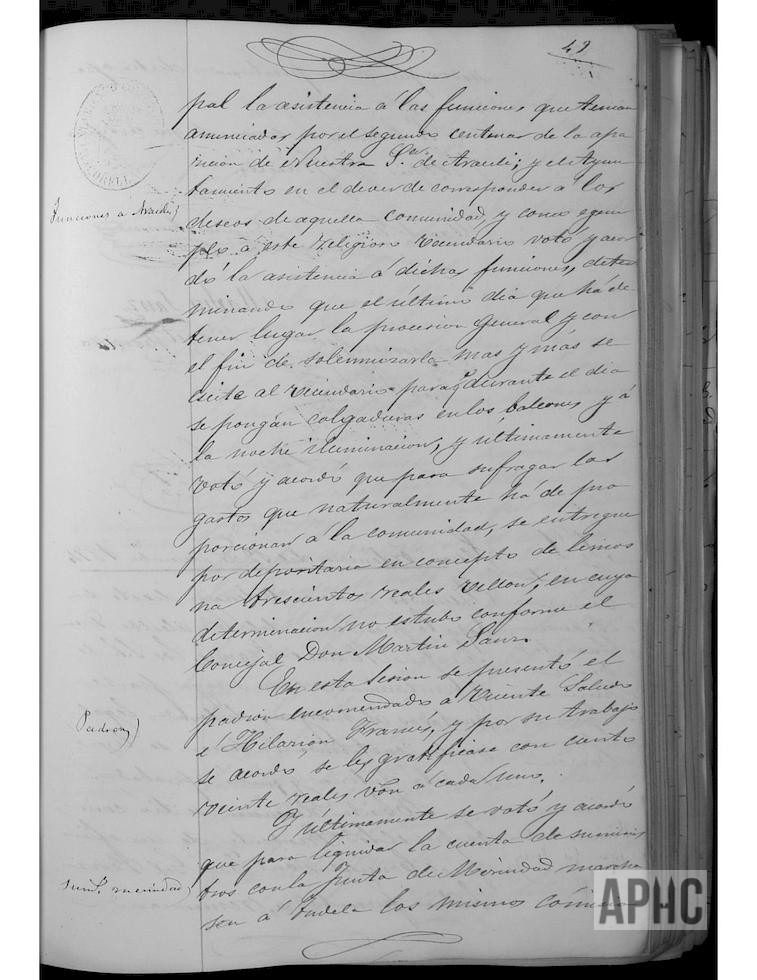 49
pal la asistencia á las funciones que tenian
anunciadas por el segundo centenar de la apa
ricion de Nuestra S.ra de Araceli; y el Ayun
tamiento en el dever de corresponder a los
Funciones a Araceli)
deseos de aquella comunidad, y como egem
plo á este religioso vecindario votó y acor
dó la asistencia á dichas funciones, deter
minando que el último dia que há de
tener lugar la procesion general y con
el fin de solemnizarla mas y más se
escite al vecindario para q.e durante el dia
se pongán colgaduras en los balcones y á
la noche iluminacion, y últimamente
votó y acordó que para sufragar los
gastos que naturalmente há de pro
porcionar á la comunidad, se entregue
por depositaria en concepto de limos
na trescientos reales vellon, en cuya
determinacion no estubo conforme el
Concejal Don Martin Sanz.
En esta sesion se presentó el
Padron)
padron encomendado a Vicente Salcedo
é Hilarion Francés, y por su trabajo
se acordó se les gratificase con ciento
veinte reales von a cada uno.
Y últimamente se votó y acordó
que para liquidar la cuenta de suminis
Sum.s merindad)
tros con la Junta de Merindad marcha
sen á Tudela los mismos comisio
APHC